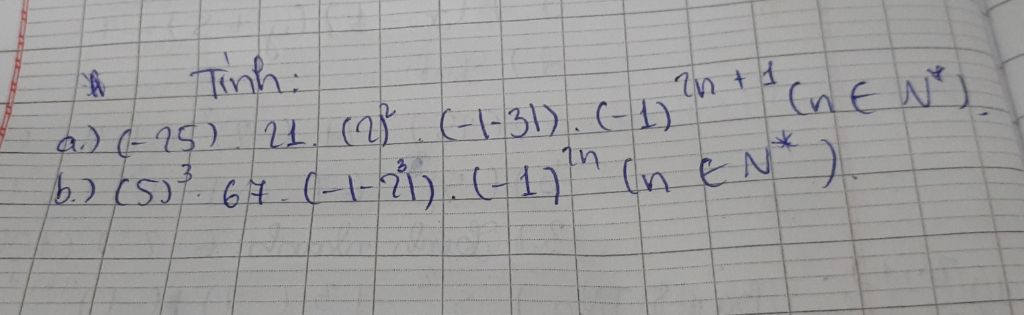 Tính:
a.) (-25) 21. (2)². (-|-3|). (-1)²ⁿ⁺¹ (n ∈ N*).
b.) (5)³. 67. (-|-2³|). (-1)²ⁿ (n ∈ N*).